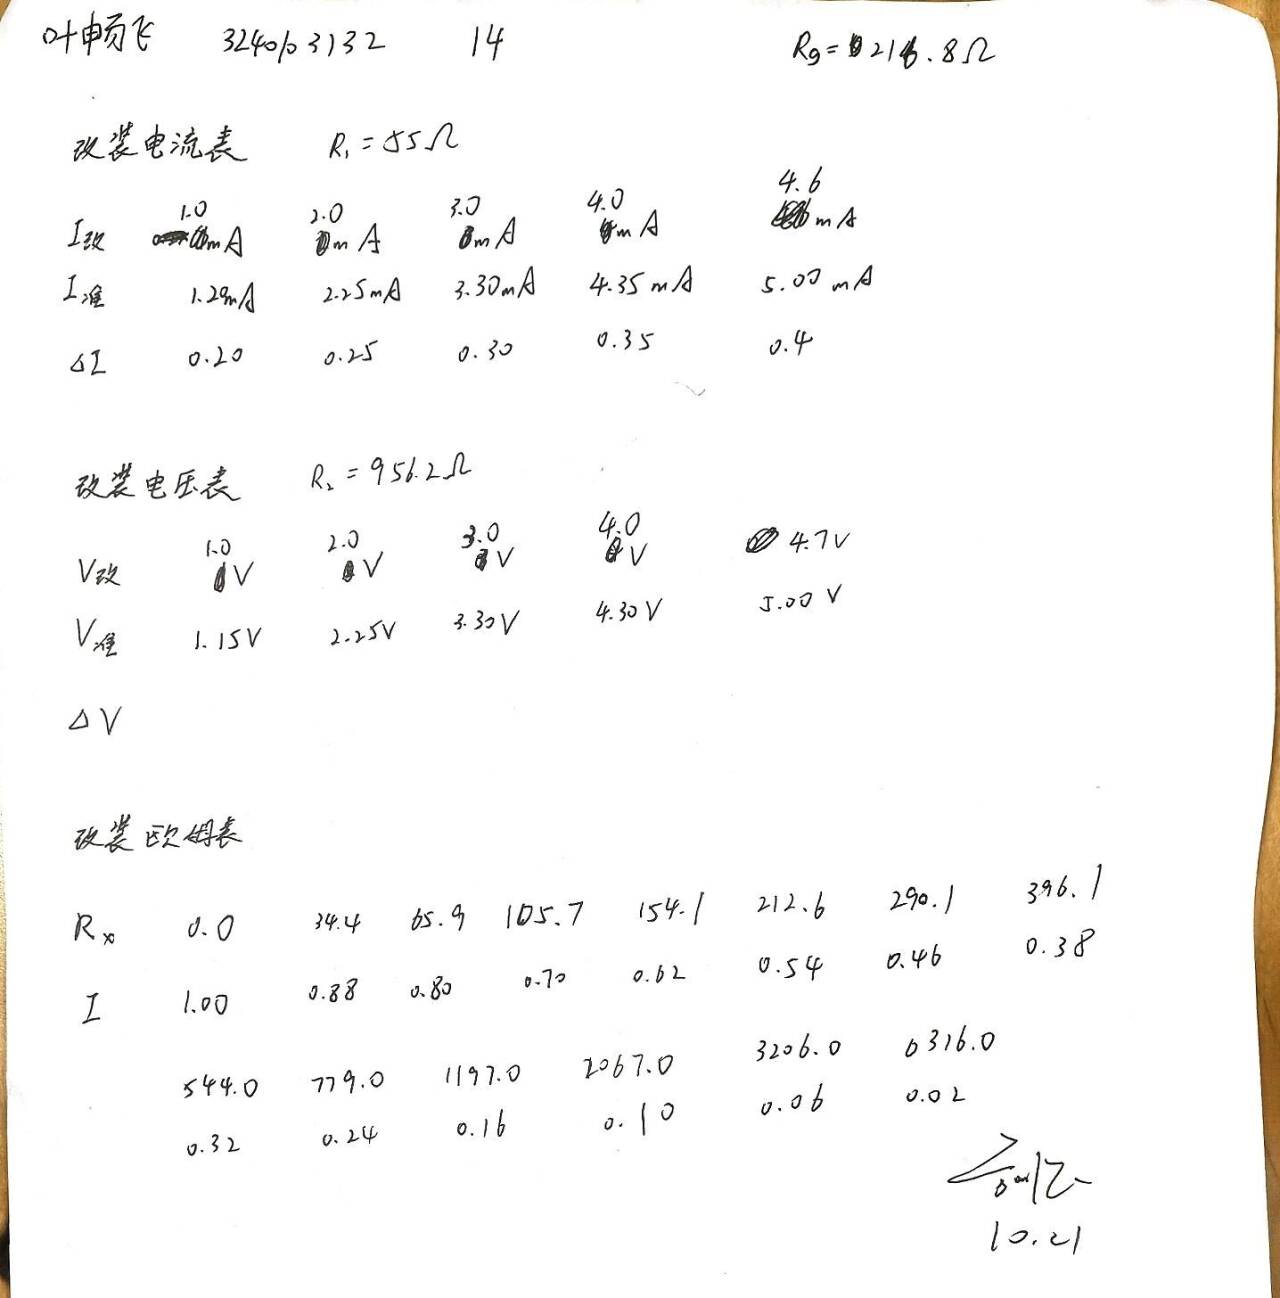 叶畅飞 3240103132 14 Rg=218.8Ω
改装电流表 R₁=55Ω
1.0 2.0 3.0 4.0 4.6
I改 mA mA mA mA mA
I准 1.20mA 2.25mA 3.30mA 4.35mA 5.00mA
ΔI 0.20 0.25 0.30 0.35 0.4
改装电压表 R₂=956.2Ω
1.0 2.0 3.0 4.0
V改 V V V V 4.7V
V准 1.15V 2.25V 3.30V 4.30V 5.00V
ΔV
改装欧姆表
Rx 0.0 34.4 65.9 105.7 154.1 212.6 290.1 396.1
I 1.00 0.88 0.80 0.70 0.62 0.54 0.46 0.38
544.0 779.0 1197.0 2067.0 3206.0 6316.0
0.32 0.24 0.16 0.10 0.06 0.02
10.21